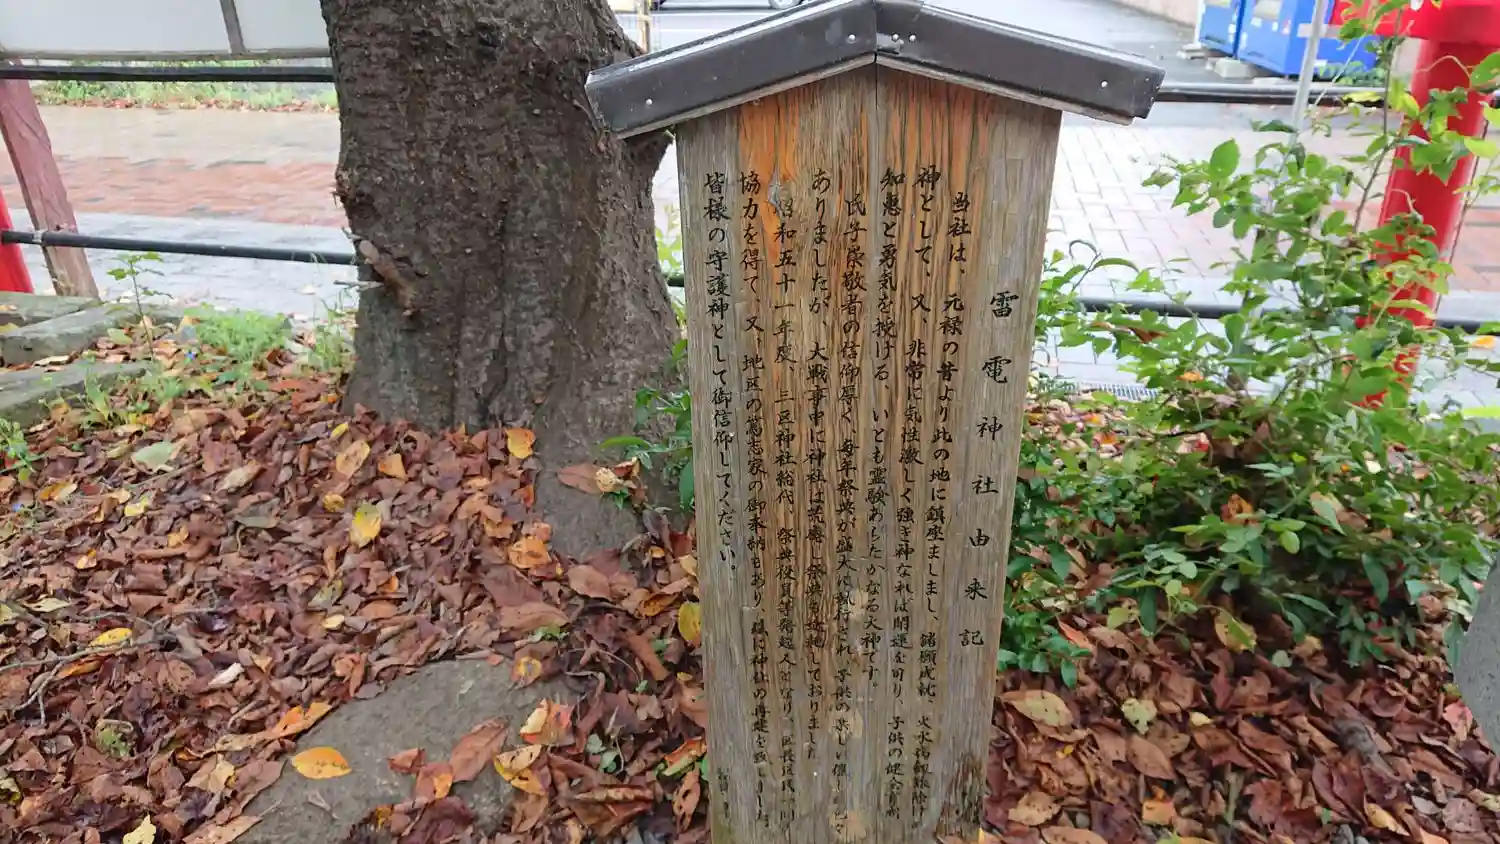 雷電神社由来記
当社は、元禄の昔より此の地に鎮座ましまし、諸願成就、火水
神として、又、非常に気性激しく強き神なれば開運を司り、子供の健全育
知恵と勇気を授ける、いとも霊験あらたかなる大神です。
氏子崇敬者の信仰厚く、毎年祭典が盛大に執行され、子供の楽しい催しも色々
ありましたが、大戦争中に神社は荒廃し祭典も途絶しておりました
昭和五十一年度、三区神社総代、祭典役員等発起人となり、区長区民一同
協力を得て、又、地区の篤志家の御奉納もあり、遂に神社の再建を致しました
皆様の守護神として御信仰してください。